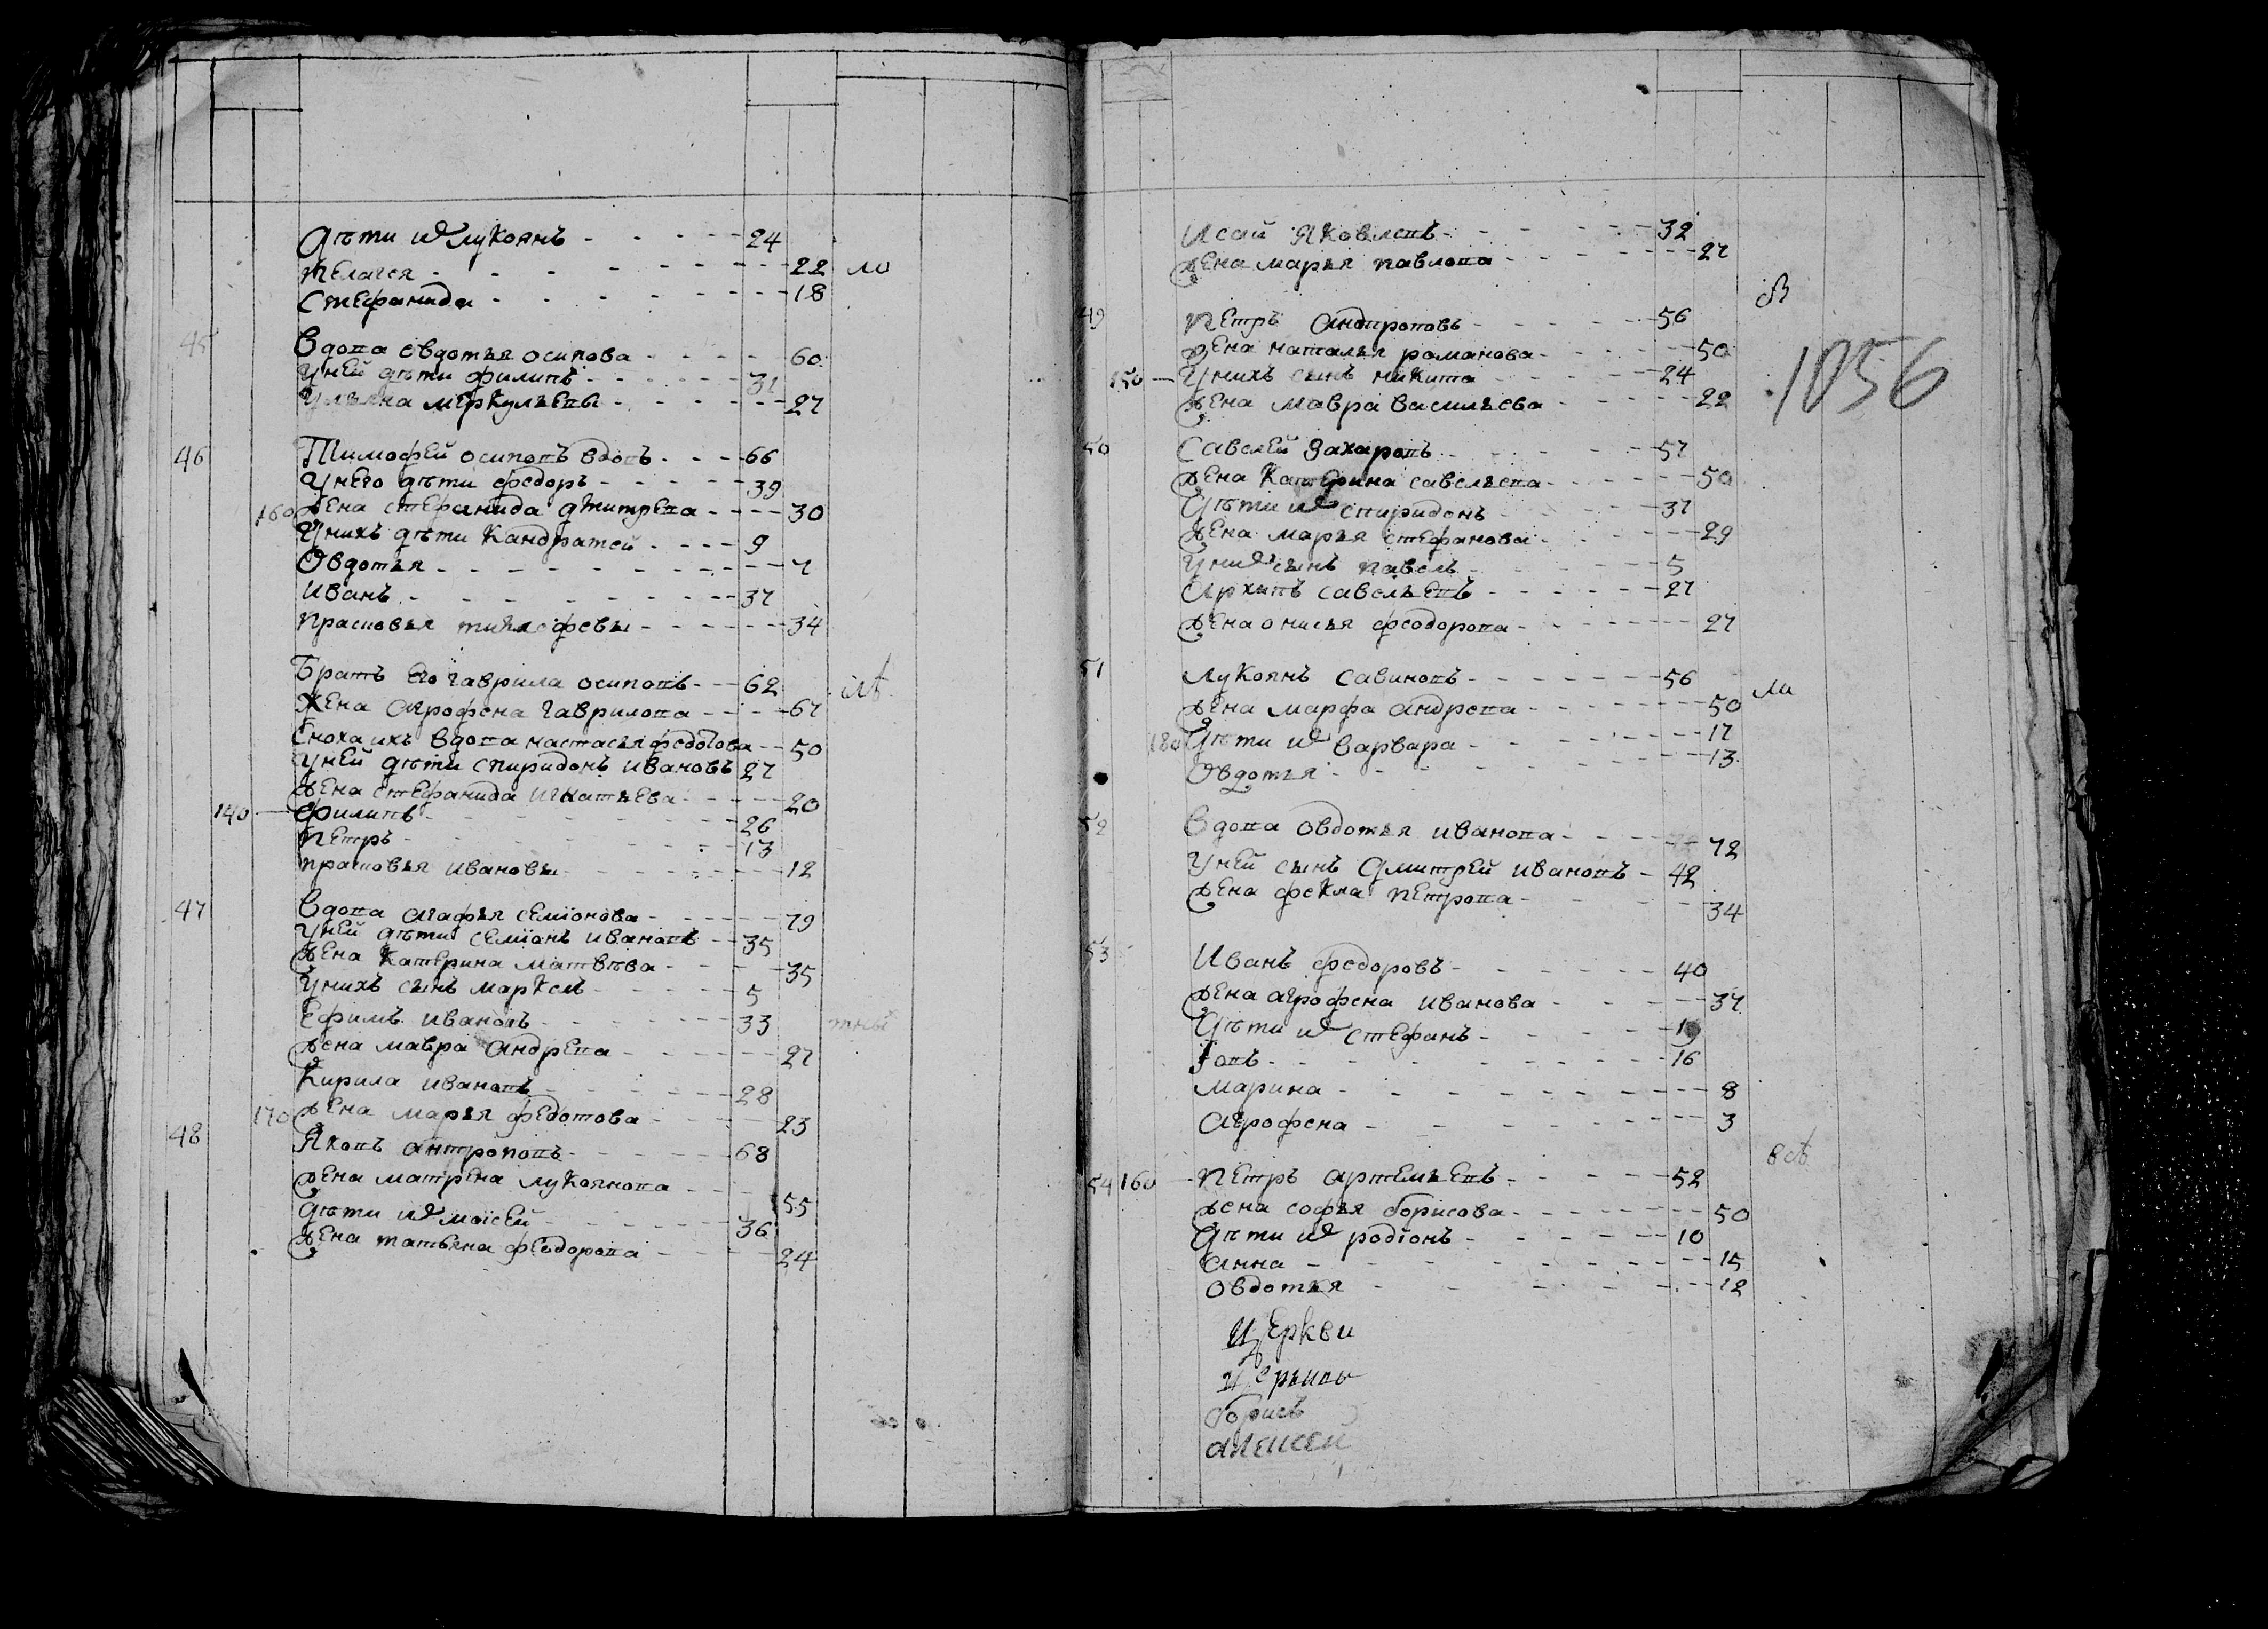 Дѣти ихъ лукоянъ - - - - 24
пелагея - - - - 22 ло
Стефанида - - - - 18
45 Вдова овдотья осипова - - - - 60
Уней дѣти филипъ - - - - 31
Ульяна меркульевы - - - - 27
46 Тимофей осиповъ вдовъ - - - 66
Унего дѣти федоръ - - - - 39
160 Жена стефанида дмитрева - - - - 30
Унихъ дѣти Кандратей - - - - 9
Овдотья - - - - 7
Иванъ - - - - 37
прасковья тимофевы - - - - 34
Братъ его гаврила осиповъ - - - 62
Жена агрофена гаврилова - - - - 67
Сноха ихъ вдова настасья федотова - - 50
Уней дѣти спиридонъ ивановъ 27
Жена стефанида игнатьева - - - - 20
140 филипъ - - - - 26
петръ - - - - 13
прасковья ивановы - - - - 12
47 Вдова агафья семіонова - - - - 79
Уней дѣти семіонъ ивановъ - - 35
Жена катерина матвѣва - - - - 35
Унихъ сынъ маркелъ - - - - 5
Ефимъ ивановъ - - - - 33
Жена мавра андрева - - - - 27
Кирила ивановъ - - - - 28
170 Жена марья федотова - - - - 23
48 Яковъ антроповъ - - - - 68
Жена матрена лукоянова - - - - 55
Дѣти ихъ моісей - - - - 36
Жена татьяна феодорова - - - - 24
Исай Яковлевъ - - - - 32
Жена марья павлова - - - - 27
св
49 петръ андроповъ - - - - 56
Жена наталья романова - - - - 50
1056
150 Унихъ сынъ никита - - - - 24
Жена мавра васильева - - - - 22
50 Савелей Захаровъ - - - - 57
Жена катерина савельева - - - - 50
Дѣти ихъ спиридонъ - - - - 37
Жена марья стефанова - - - - 29
Унихъ сынъ павелъ - - - - 5
Архипъ савельевъ - - - - 27
Жена онисья феодорова - - - - 27
51 лукоянъ савиновъ - - - - 56
Жена марфа андрева - - - - 50
180 Дѣти ихъ варвара - - - - 17
Овдотья - - - - 13
52 Вдова овдотья иванова - - - - 72
Уней сынъ дмитрей ивановъ - 42
Жена фекла петрова - - - - 34
53 Иванъ федоровъ - - - - 40
Жена агрофена иванова - - - - 37
Дѣти ихъ стефанъ - - - - 19
Іовъ - - - - 16
марина - - - - 8
агрофена - - - - 3
54 160 петръ артемьевъ - - - - 52
Жена софья борисова - - - - 50
Дѣти ихъ родіонъ - - - - 10
анна - - - - 15
овдотья - - - - 12
Церкви
борисъ
алексеи